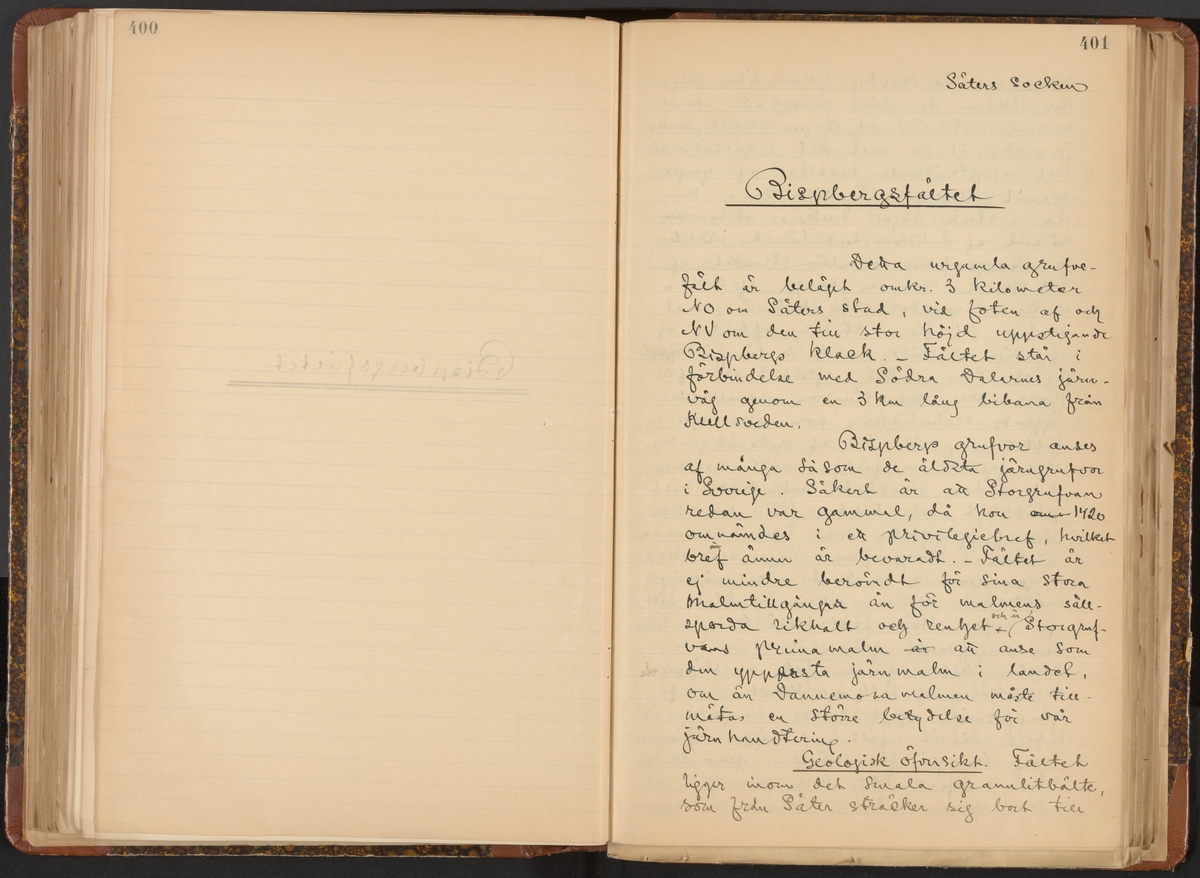 400
401
Säters socken
Bispbergsfältet
Detta urgamla grufve-
fält är beläget omkr. 3 kilometer
NO om Säters stad, vid foten af och
NV om den till stor höjd uppstigande
Bispbergs klack. – Fältet står i
förbindelse med Södra Dalarnes järn-
väg genom en 3 km lång bibana från
Kullsveden.
Bispbergs grufvor anses
af många såsom de äldsta järngrufvor
i Sverige. Säkert är att Storgrufvan
redan var gammal, då hon 1420
omnämdes i ett privilegiebref, hvilket
bref ännu är bevaradt. – Fältet är
ej mindre berömdt för sina stora
malmtillgångar än för malmens säll-
sporda rikhalt och renhet och är Storgruf-
vans prima malm är att anse som
den yppersta järnmalm i landet,
om än Dannemoramalmen måste till-
mätas en större betydelse för vår
järnhandtering.
Geologisk öfversikt. Fältet
ligger inom det smala granulitbälte,
som från Säter sträcker sig bort till